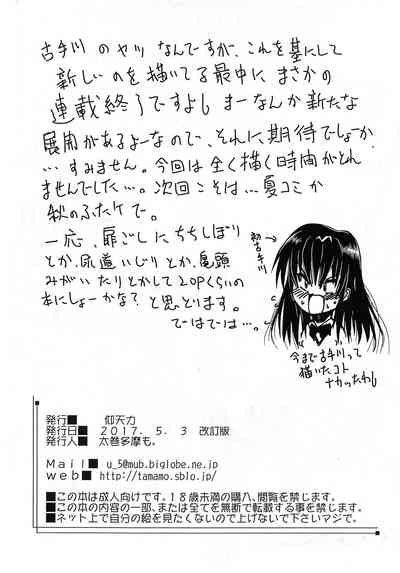 古手川 のヤツ なんですが、これを基にして
新しいのを描いてる最中に まさかの
連載終了ですよし まーなんか新たな
展開があるよーなので、それに期待でしょーか
… すみません。今回は全く描く時間がとれ
ませんでした…。次回こそは…夏コミか
秋のふたケで。
一応、扉ごしにちちしぼり
とか、尿道いじりとか、亀頭
みがいたりとかして20Pくらいの
本にしょーかな?と思とります。
でーはでーは…。
初古手川
今まで古手川って
描いたコト
ナカッたわし
発行■ 仰天力
発行日■ 2017. 5. 3 改訂版
発行人■ 太巻多摩も。
Mail■ u_5@mub.biglobe.ne.jp
web■ http://tamamo.sblo.jp/
■この本は成人向けです。18歳未満の購入、閲覧を禁じます。
■この本の内容の一部、または全てを無断で転載する事を禁じます。
■ネット上で自分の絵を見たくないので上げないで下さいアジで。